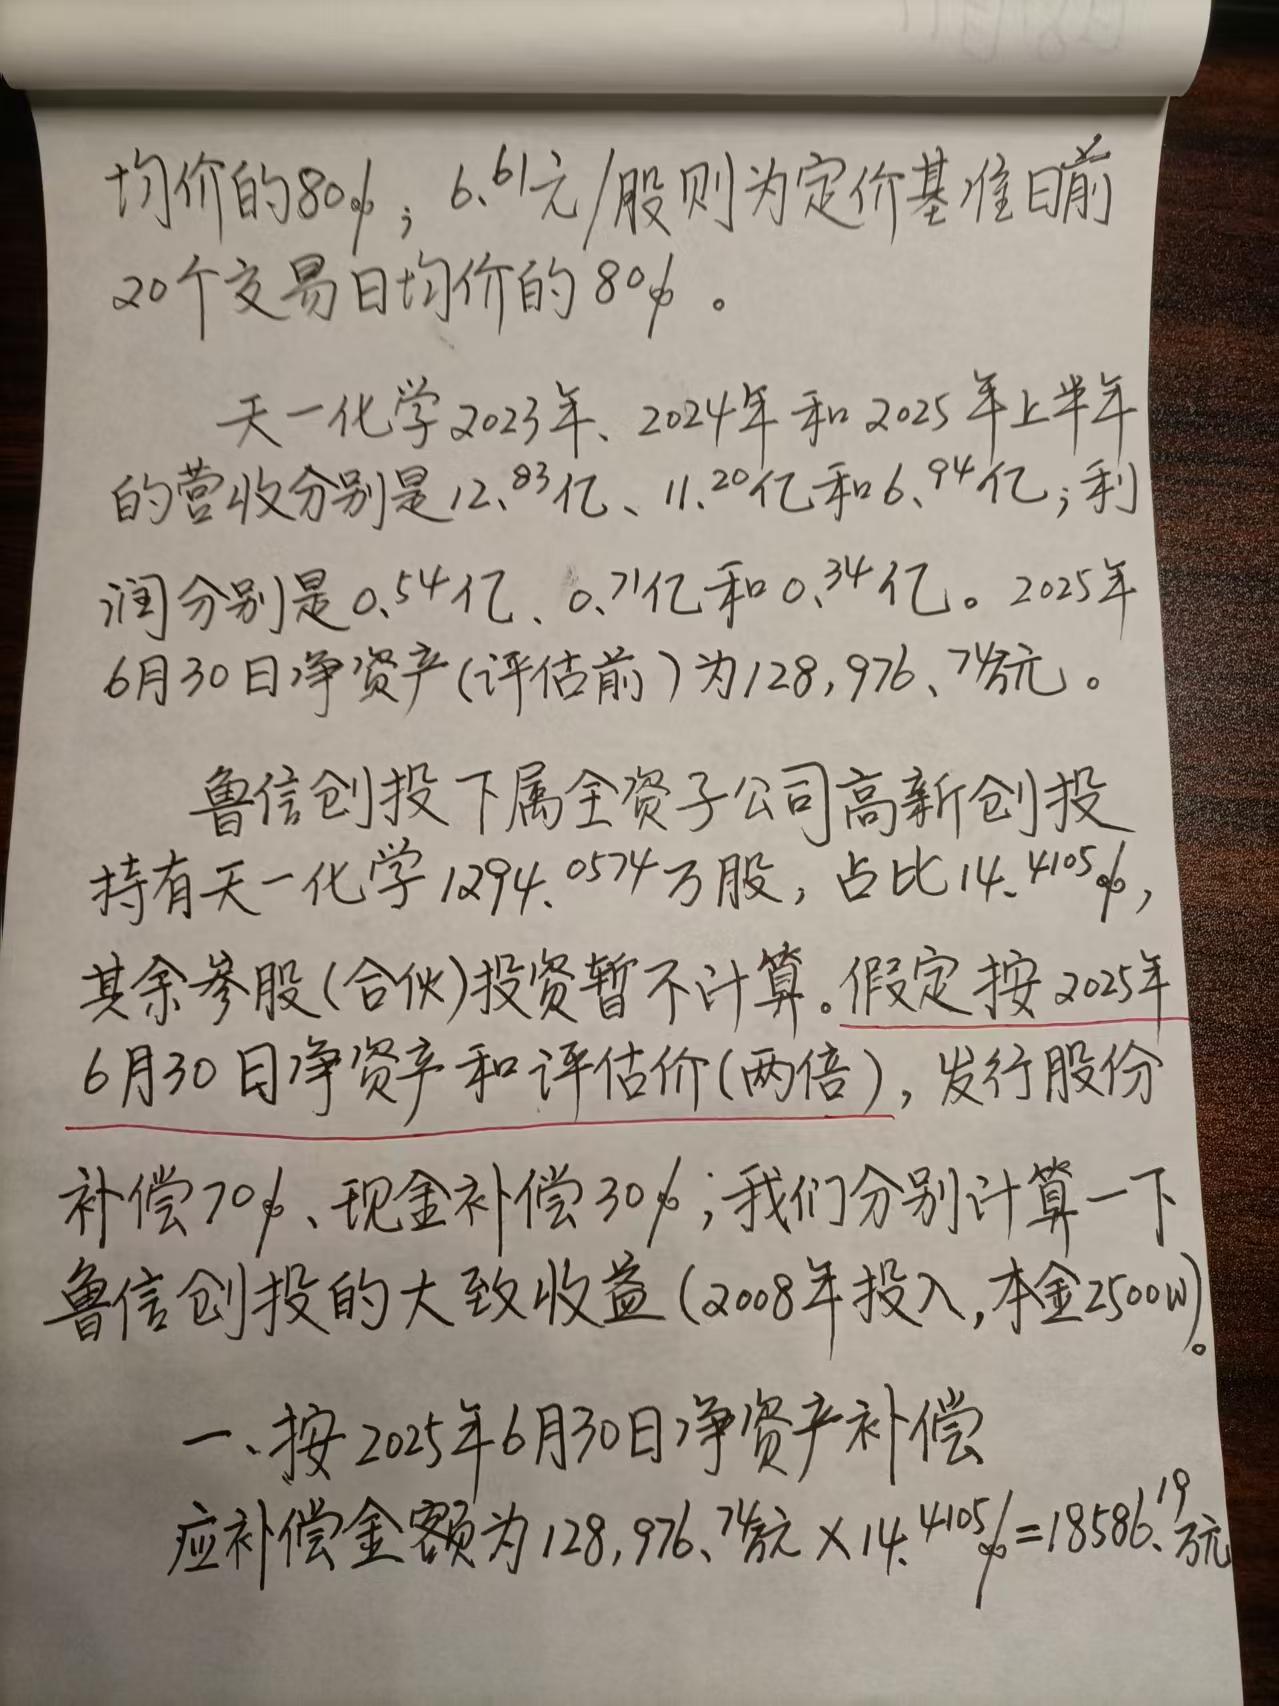 均价的80%；6.61元/股则为定价基准日前
20个交易日均价的80%。
天一化学2023年、2024年和2025年上半年
的营收分别是12.83亿、11.20亿和6.94亿；利
润分别是0.54亿、0.71亿和0.34亿。2025年
6月30日净资产(评估前)为128,976.74万元。
鲁信创投下属全资子公司高新创投
持有天一化学1294.0574万股，占比14.4105%，
其余参股(合伙)投资暂不计算。假定按2025年
6月30日净资产和评估价(两倍)，发行股份
补偿70%、现金补偿30%；我们分别计算一下
鲁信创投的大致收益(2008年投入,本金2500W)。
一、按2025年6月30日净资产补偿
应补偿金额为128,976.74万元×14.4105%=18586.19万元